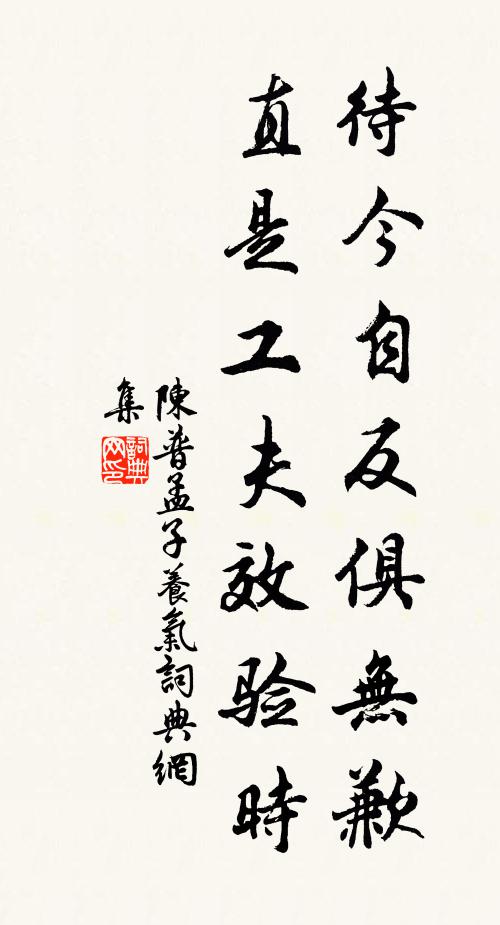 待今自反俱無歉
直是工夫效验時
陳普孟子養氣詞典網
集
詞典
网印